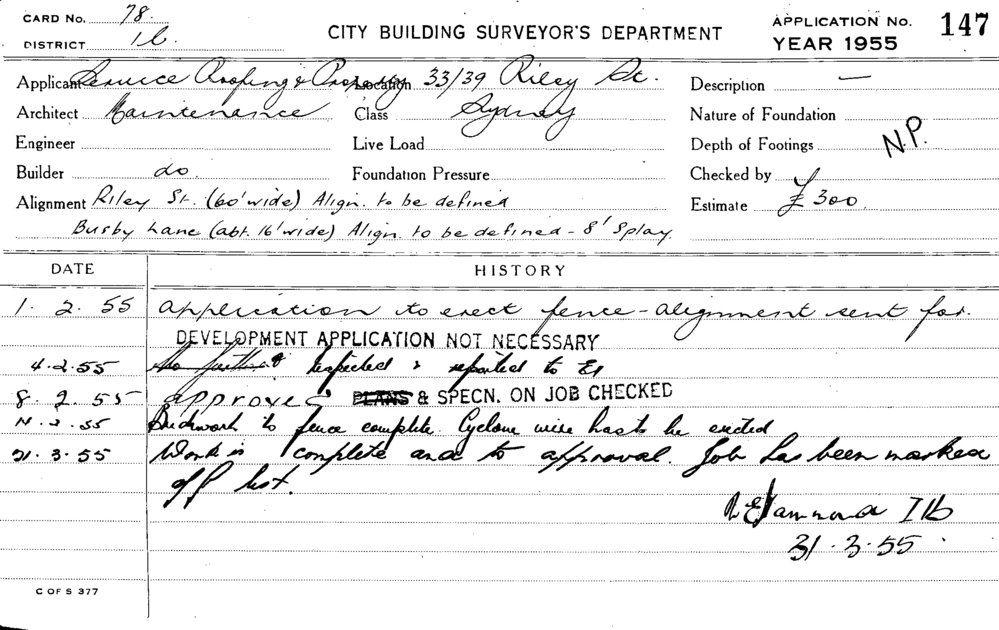 CARD No. 78.
DISTRICT 1b.
CITY BUILDING SURVEYOR'S DEPARTMENT
APPLICATION No. 147
YEAR 1955
Applicant Service Roofing & Property Location 33/39 Riley St. Description —
Architect Maintenance Class Sydney Nature of Foundation
Engineer Live Load Depth of Footings N.P.
Builder do Foundation Pressure Checked by
Alignment Riley St. (60' wide) Align. to be defined Estimate £300.
Busby Lane (abt. 16' wide) Align. to be defined - 8' Splay.
DATE HISTORY
1. 2. 55 Application to erect fence - alignment sent for.
DEVELOPMENT APPLICATION NOT NECESSARY
4.2.55 Inspected & reported to
8. 2. 55 approved PLANS & SPECN. ON JOB CHECKED
55 Brickwork to fence complete. Cyclone wire has to be erected
31.3.55 Work is complete and to approval. Job has been marked
off list.
31.3.55.
C OF S 377